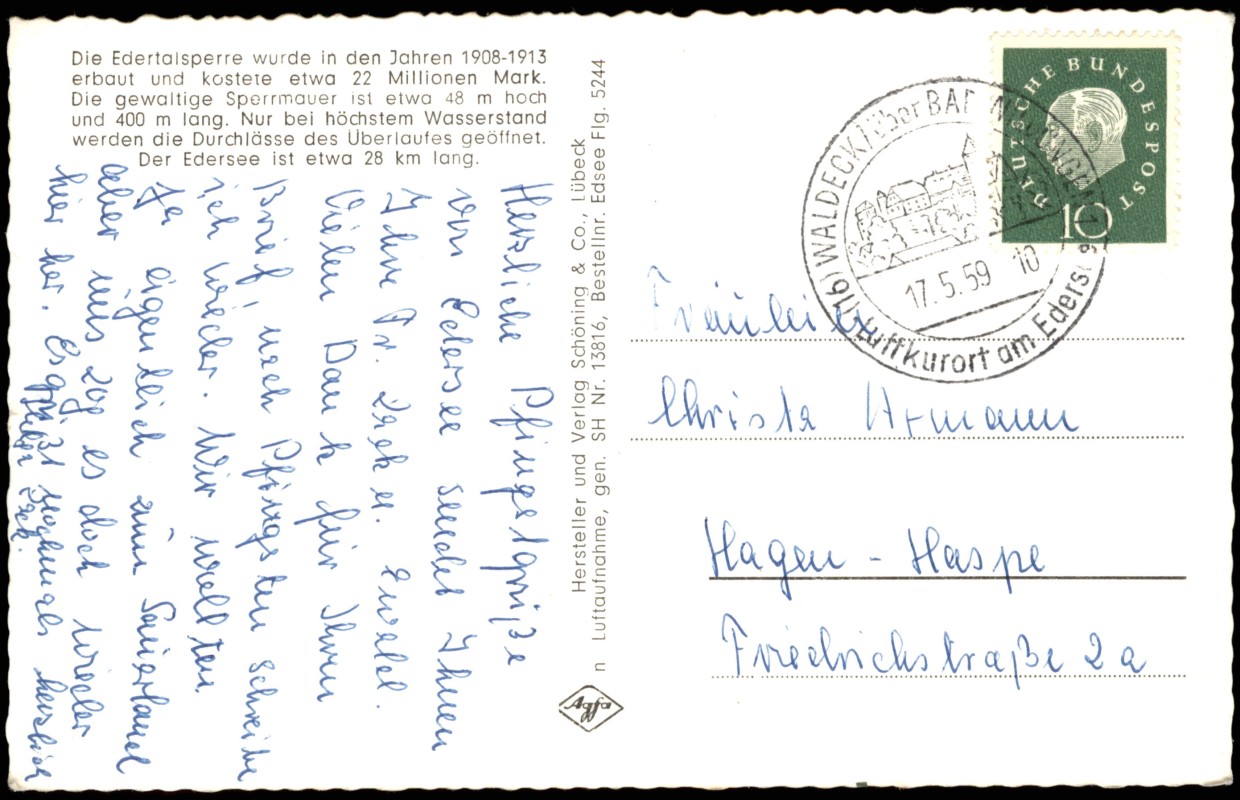 Die Edertalsperre wurde in den Jahren 1908-1913
erbaut und kostete etwa 22 Millionen Mark.
Die gewaltige Sperrmauer ist etwa 48 m hoch
und 400 m lang. Nur bei höchstem Wasserstand
werden die Durchlässe des Überlaufes geöffnet.
Der Edersee ist etwa 28 km lang.
Herzliche Pfingstgrüße
vom Edersee sendet Ihnen
Ihre Fr.
Vielen Dank für Ihren
Brief, nach Pfingsten schreibe
ich wieder. Wir wollten
ja eigentlich zum Sauerland
aber uns zog es doch wieder
hier her. Es grüßt nochmals herzlich
Hersteller und Verlag Schöning & Co., Lübeck
n Luftaufnahme, gen. SH Nr. 13816, Bestellnr. Edsee Flg. 5244
Agfa
DEUTSCHE BUNDESPOST
10
(16) WALDECK/über BAD WILDUNGEN
17.5.59 10
Luftkurort am Edersee
Fräulein
Christa
Hagen - Haspe
Friedrichstraße 2a